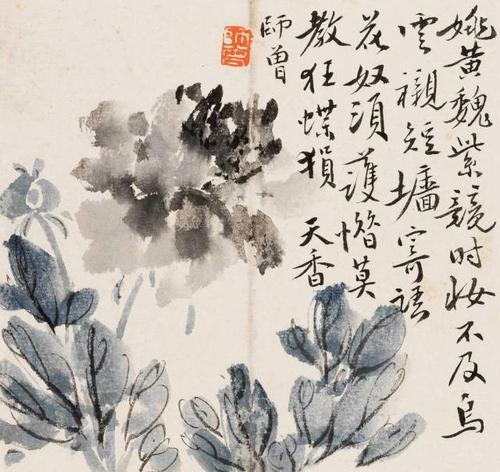 姚黄魏紫競时妝不及烏
雲襯短墻寄語
花奴須護惜莫
教狂蝶損天香
師曾